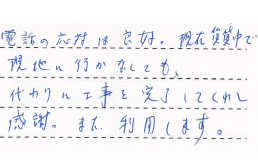 電話の応対は良好。現在賃貸中で
現地に行かなくても、
代わりに工事を完了してくれ
感謝。また利用します。